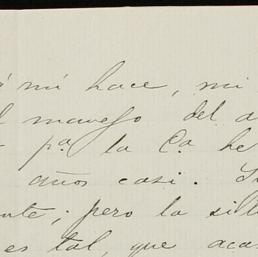 mí hace, mi
manejo del a
pª la Cª he
años casi.
nte; pero la sill
es tal, que aca